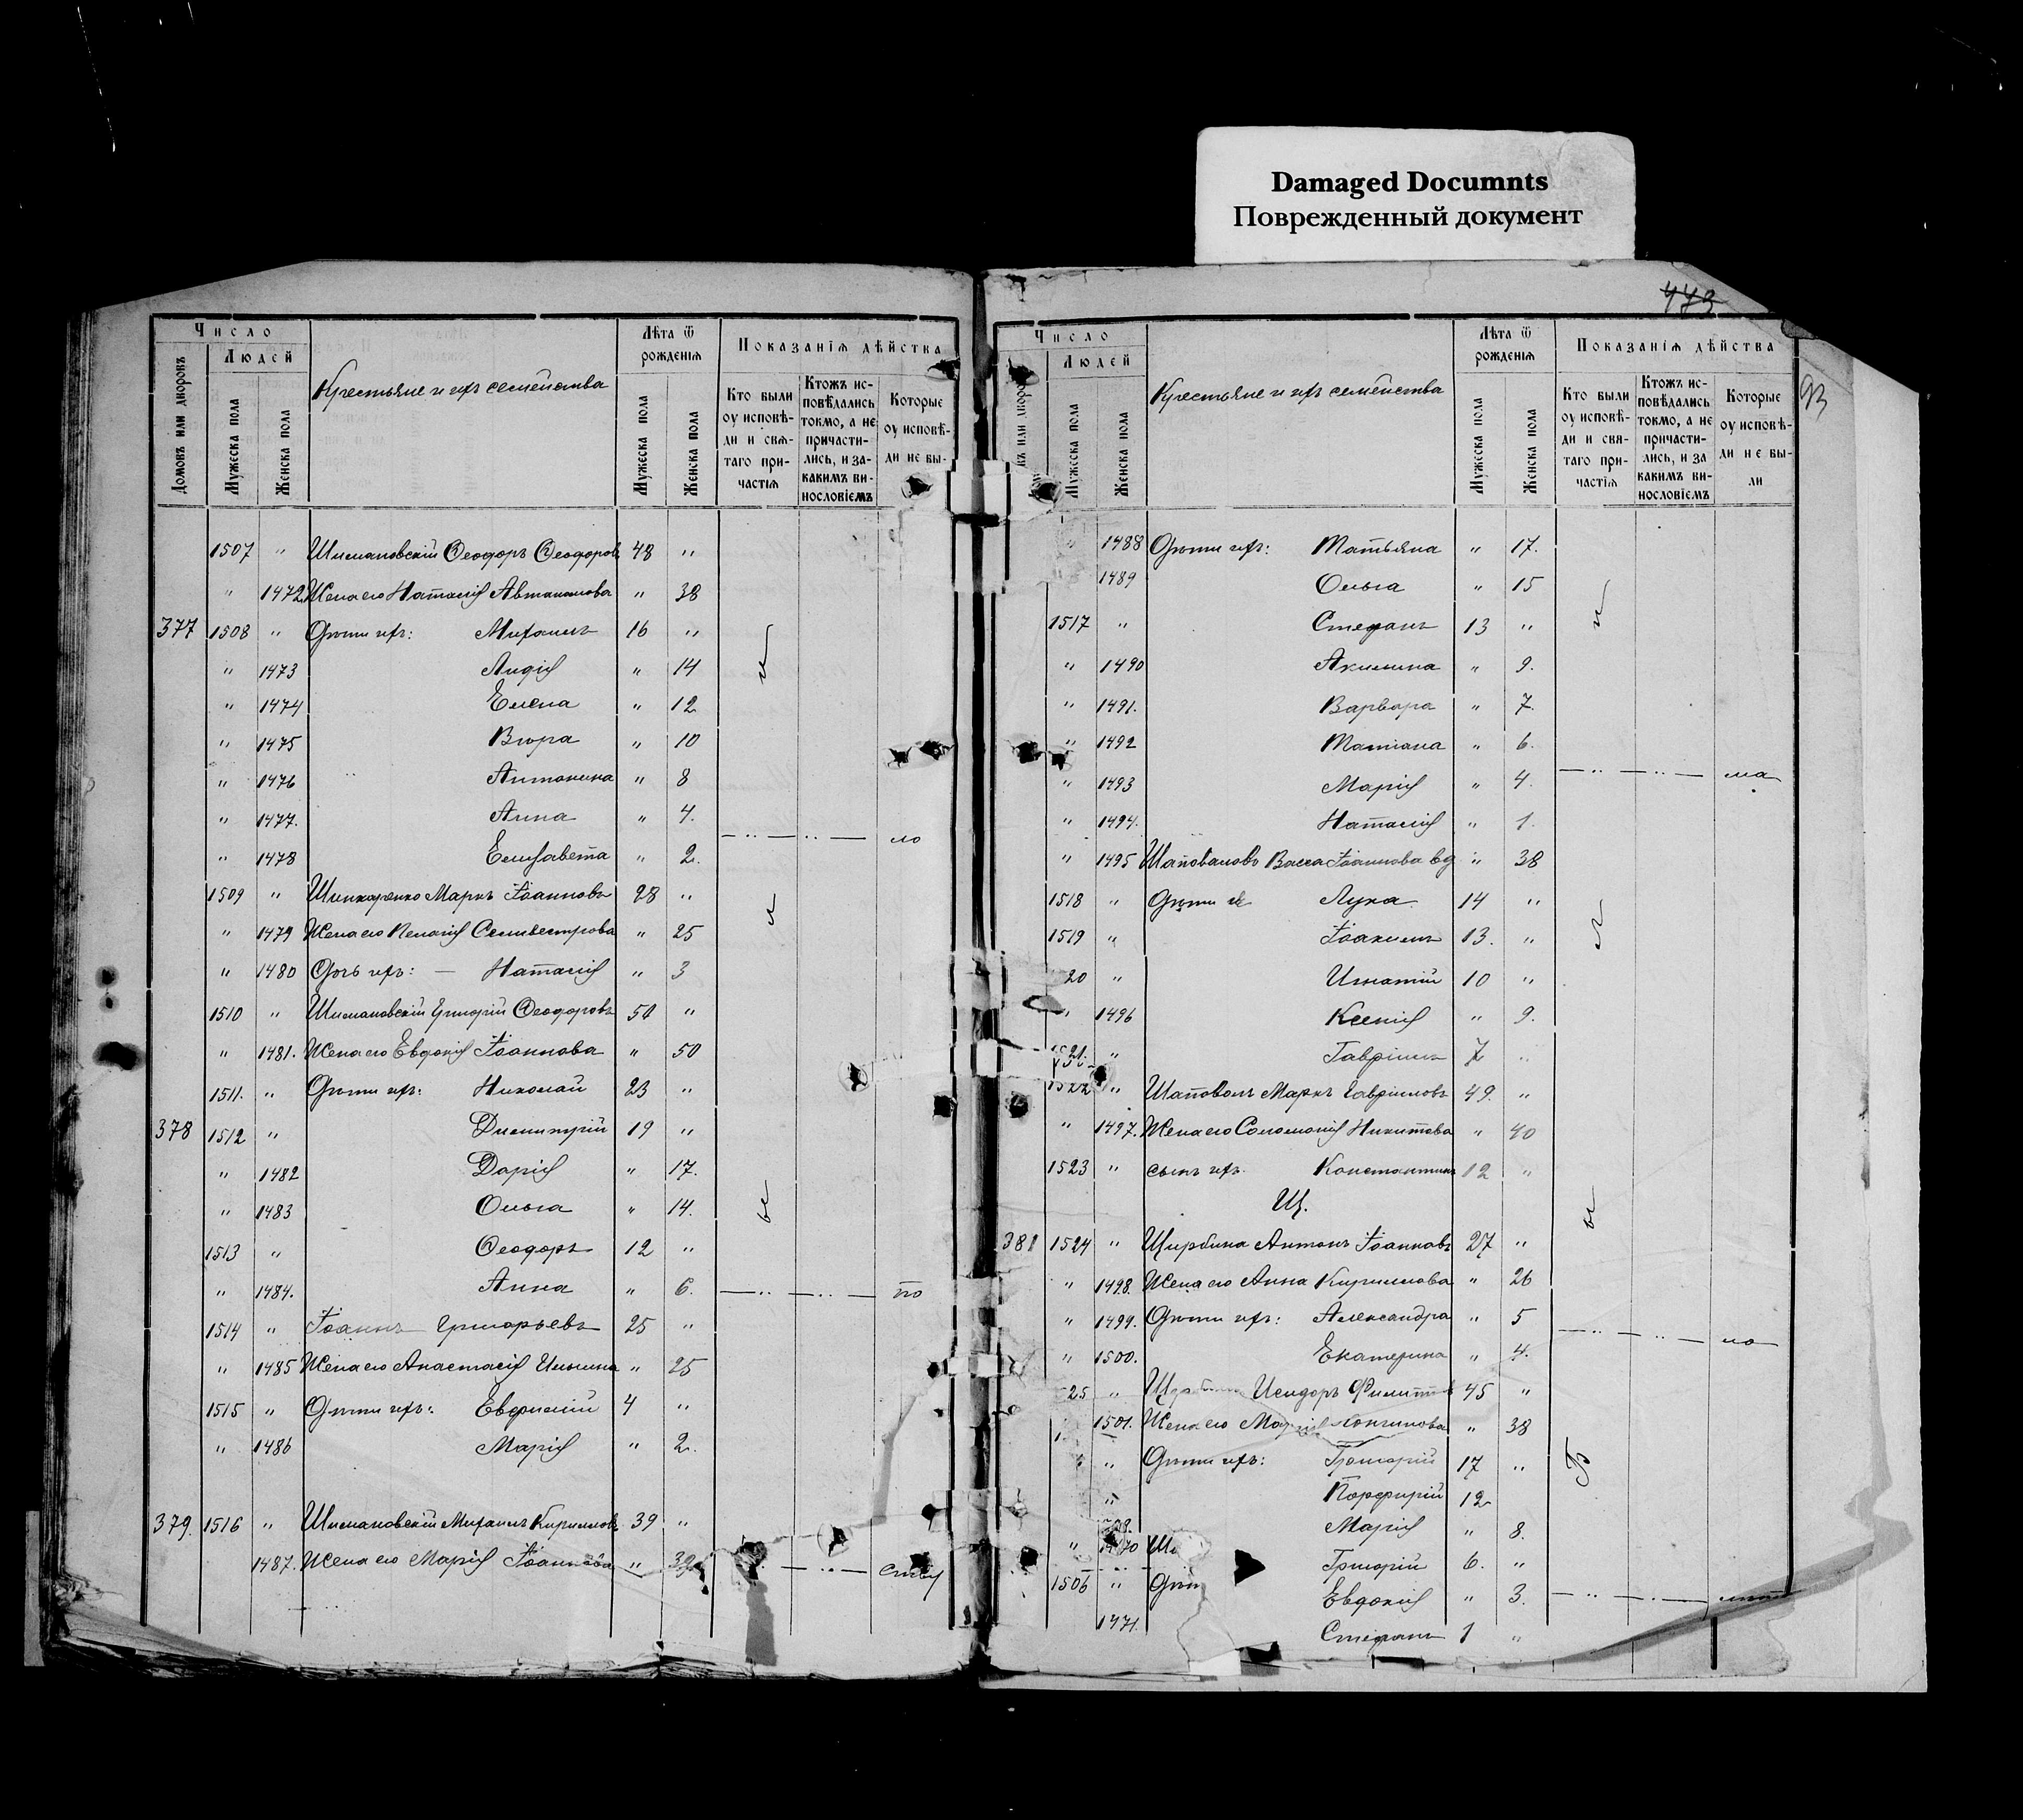 Damaged Documnts
Поврежденный документ
Число
Людей
Домовъ или дворовъ
Мужеска пола
Женска пола
Крестьяне и ихъ семейства
Лѣта ѿ рожденїѧ
Мужеска пола
Женска пола
Показанїѧ дѣйства
Кто были оу исповѣди и свѧтаго причастїѧ
Ктожъ исповѣдались токмо, а не причастились, и за какимъ винословїемъ
Которые оу исповѣди не бы-
1507 " Шимановскій Ѳеодоръ Ѳеодоров 48 "
" 1472 Жена его Наталія Автономова " 38
377 1508 " Дѣти ихъ: Михаилъ 16 "
" 1473 Лидія " 14
" 1474 Елена " 12
" 1475 Вѣра " 10
" 1476 Антонина " 8
" 1477. Анна " 4.
" 1478 Елисавета " 2.
1509 " Шинкаренко Маркъ Іоанновъ 28 "
" 1479 Жена его Пелагія Селивестрова " 25
" 1480 Дочь ихъ: — Наталія " 3
1510 " Шимановскій Григорій Ѳеодоровъ 50 "
" 1481. Жена его Евдокія Іоаннова " 50
1511. " Дѣти ихъ: Николай 23 "
378 1512 " Димитрій 19 "
" 1482 Дарія " 17.
" 1483 Ольга " 14.
1513 " Ѳеодоръ 12 "
" 1484. Анна " 6.
1514 " Іоаннъ Григорьевъ 25 "
" 1485 Жена его Анастасія Ильина " 25
1515 " Дѣти ихъ: Евфимій 4 "
" 1486 Марія " 2.
379. 1516 " Шимановскій Михаилъ Кирилловъ 39 "
1487. Жена его Марія Іоаннова " 39
473
93
Число
Людей
Мужеска пола
Женска пола
Крестьяне и ихъ семейства
Лѣта ѿ рожденїѧ
Мужеска пола
Женска пола
Показанїѧ дѣйства
Кто были оу исповѣди и свѧтаго причастїѧ
Ктожъ исповѣдались токмо, а не причастились, и за какимъ винословїемъ
Которые оу исповѣди не были
" 1488 Дѣти ихъ: Татьяна " 17.
1489 Ольга " 15
1517 " Стефанъ 13 "
" 1490 Акилина " 9.
" 1491. Варвара " 7.
" 1492 Татіана " 6.
" 1493 Марія " 4.
" 1494. Наталія " 1.
" 1495 Шаповаловъ Васса Іоаннова вд " 38
1518 " Дѣти ея Лука 14 "
1519 " Іоакимъ 13. "
20 " Игнатій 10 "
" 1496 Ксенія " 9.
1521. " Гавріилъ 7 "
1522 " Шаповалъ Маркъ Гавриловъ 49. "
" 1497. Жена его Соломонія Никитова " 40
1523 " сынъ ихъ Константинъ 12 "
Щ.
381 1524 " Щирбина Антонъ Іоанновъ 27 "
" 1498. Жена его Анна Кириллова " 26
" 1499. Дѣти ихъ: Александра " 5
" 1500. Екатерина " 4.
25 " Исидоръ 45 "
1501. Жена его " 38
" Дѣти ихъ: Григорій 17 "
" Порфирій 12
Марія " 8.
" 1470 Григорій 6. "
1506 " Евдокія " 3.
1471. Стефанъ 1 "